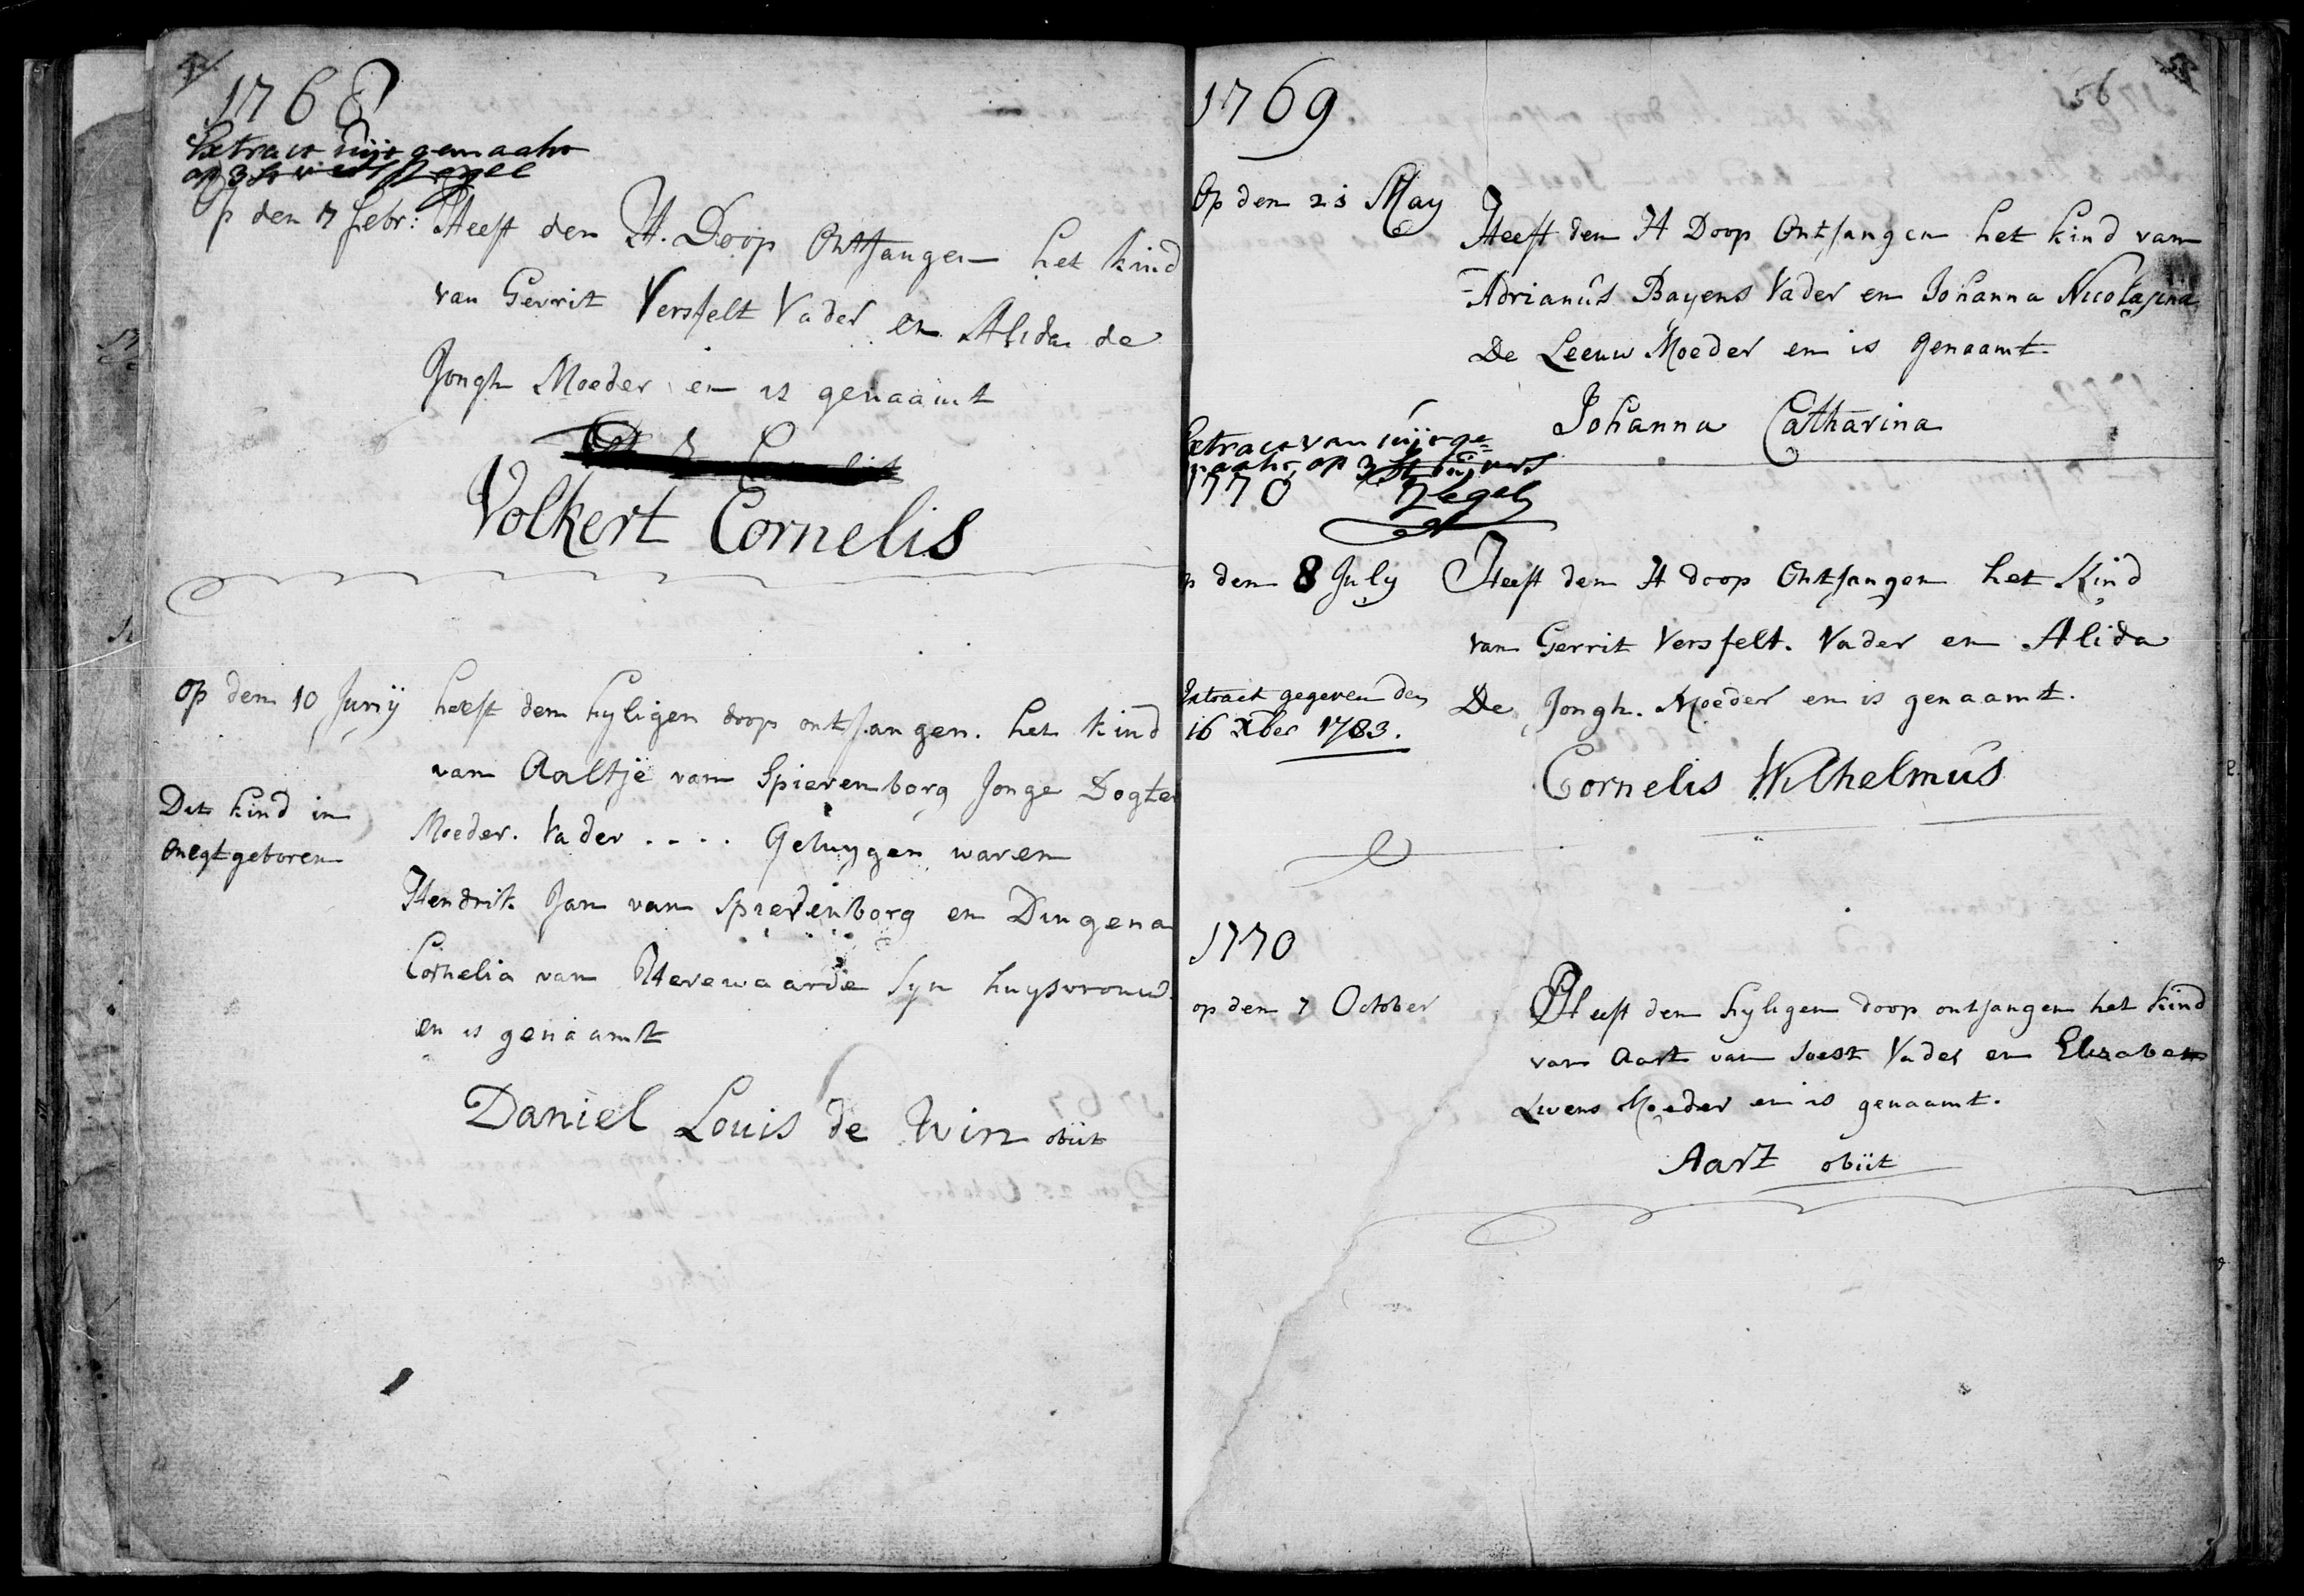 1768
Extract uijt gemaakt
op 3 st Zegel
Op den 7 febr: Heeft den H. Doop Ontfangen het kind
van Gerrit Versfelt Vader en Alida de
Jongh Moeder en is genaamt
Volkert Cornelis
op den 10 Junij heeft den hyligen doop ontfangen. het kind
van Aaltje van Spierenborg Jonge Dogter
Dit kind in
onegt geboren
Moeder. Vader .... Getuygen waren
Hendrik Jan van Spierenborg en Dingena
Cornelia van Herewaarde Syn huysvrouw.
en is genaamt
Daniel Louis de Win obiit
56
1769
Op den 21 May
Heeft den H Doop Ontfangen het kind van
Adrianus Bayens Vader en Johanna Nicolasina
De Leeuw Moeder en is genaamt
Johanna Catharina
Extract van uijt ge=
maakt, op 3 Stuijvers
1770 Zegel
op den 8 July Heeft den H doop Ontfangen het Kind
van Gerrit Versfelt. Vader en Alida
De Jongh. Moeder en is genaamt.
Extract gegeven den
16 Xber 1783.
Cornelis Wilhelmus
1770
op den 7 October Heeft den hyligen doop ontfangen het kind
van Aart van Soest Vader en Elizabet
Livens Moeder en is genaamt.
Aart obiit